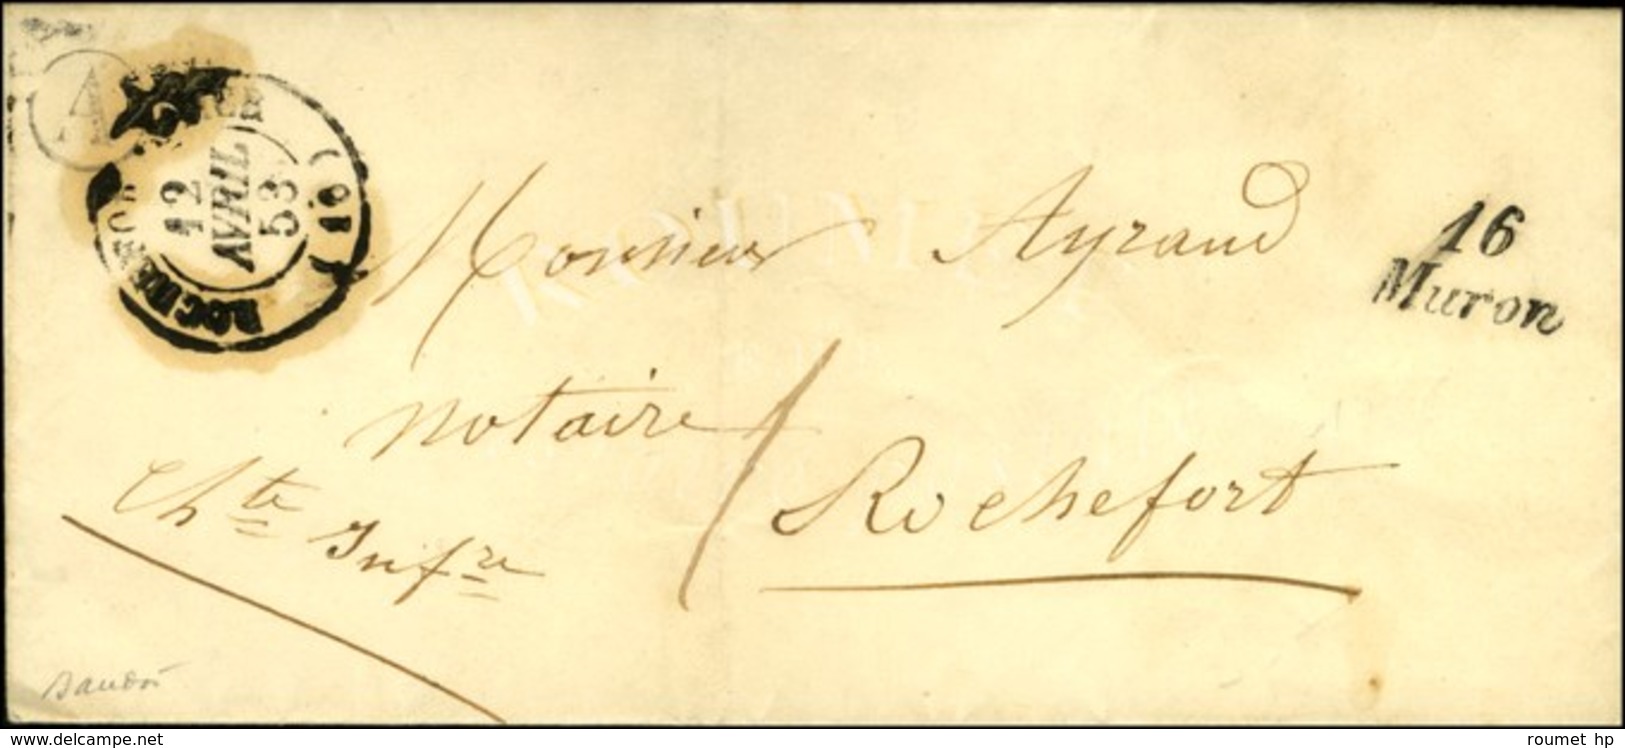 A
ROCHEFORT
12
AVRIL
53
(16)
16
Muron
Monsieur Ayraud
notaire
Rochefort
Chte Infre
www.delcampe.net
roumet hp